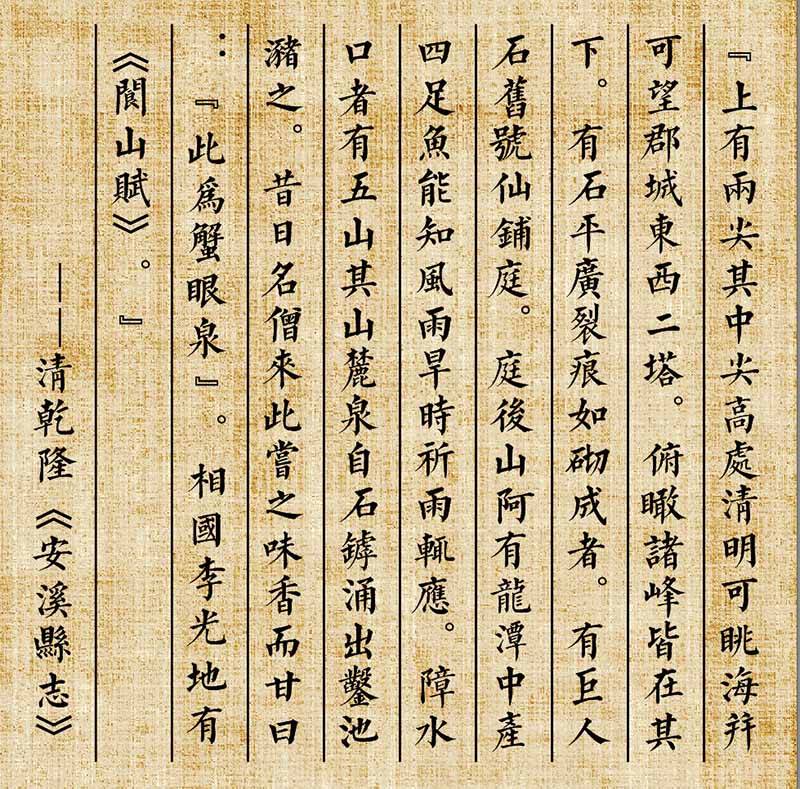 『上有兩尖其中尖高處清明可眺海并
可望郡城東西二塔。俯瞰諸峰皆在其
下。有石平廣裂痕如砌成者。有巨人
石舊號仙鋪庭。庭後山阿有龍潭中產
四足魚能知風雨旱時祈雨輒應。障水
口者有五山其山麓泉自石罅涌出鑿池
瀦之。昔日名僧來此嘗之味香而甘曰
：『此爲蟹眼泉』。相國李光地有
《閬山賦》。』
——清乾隆《安溪縣志》